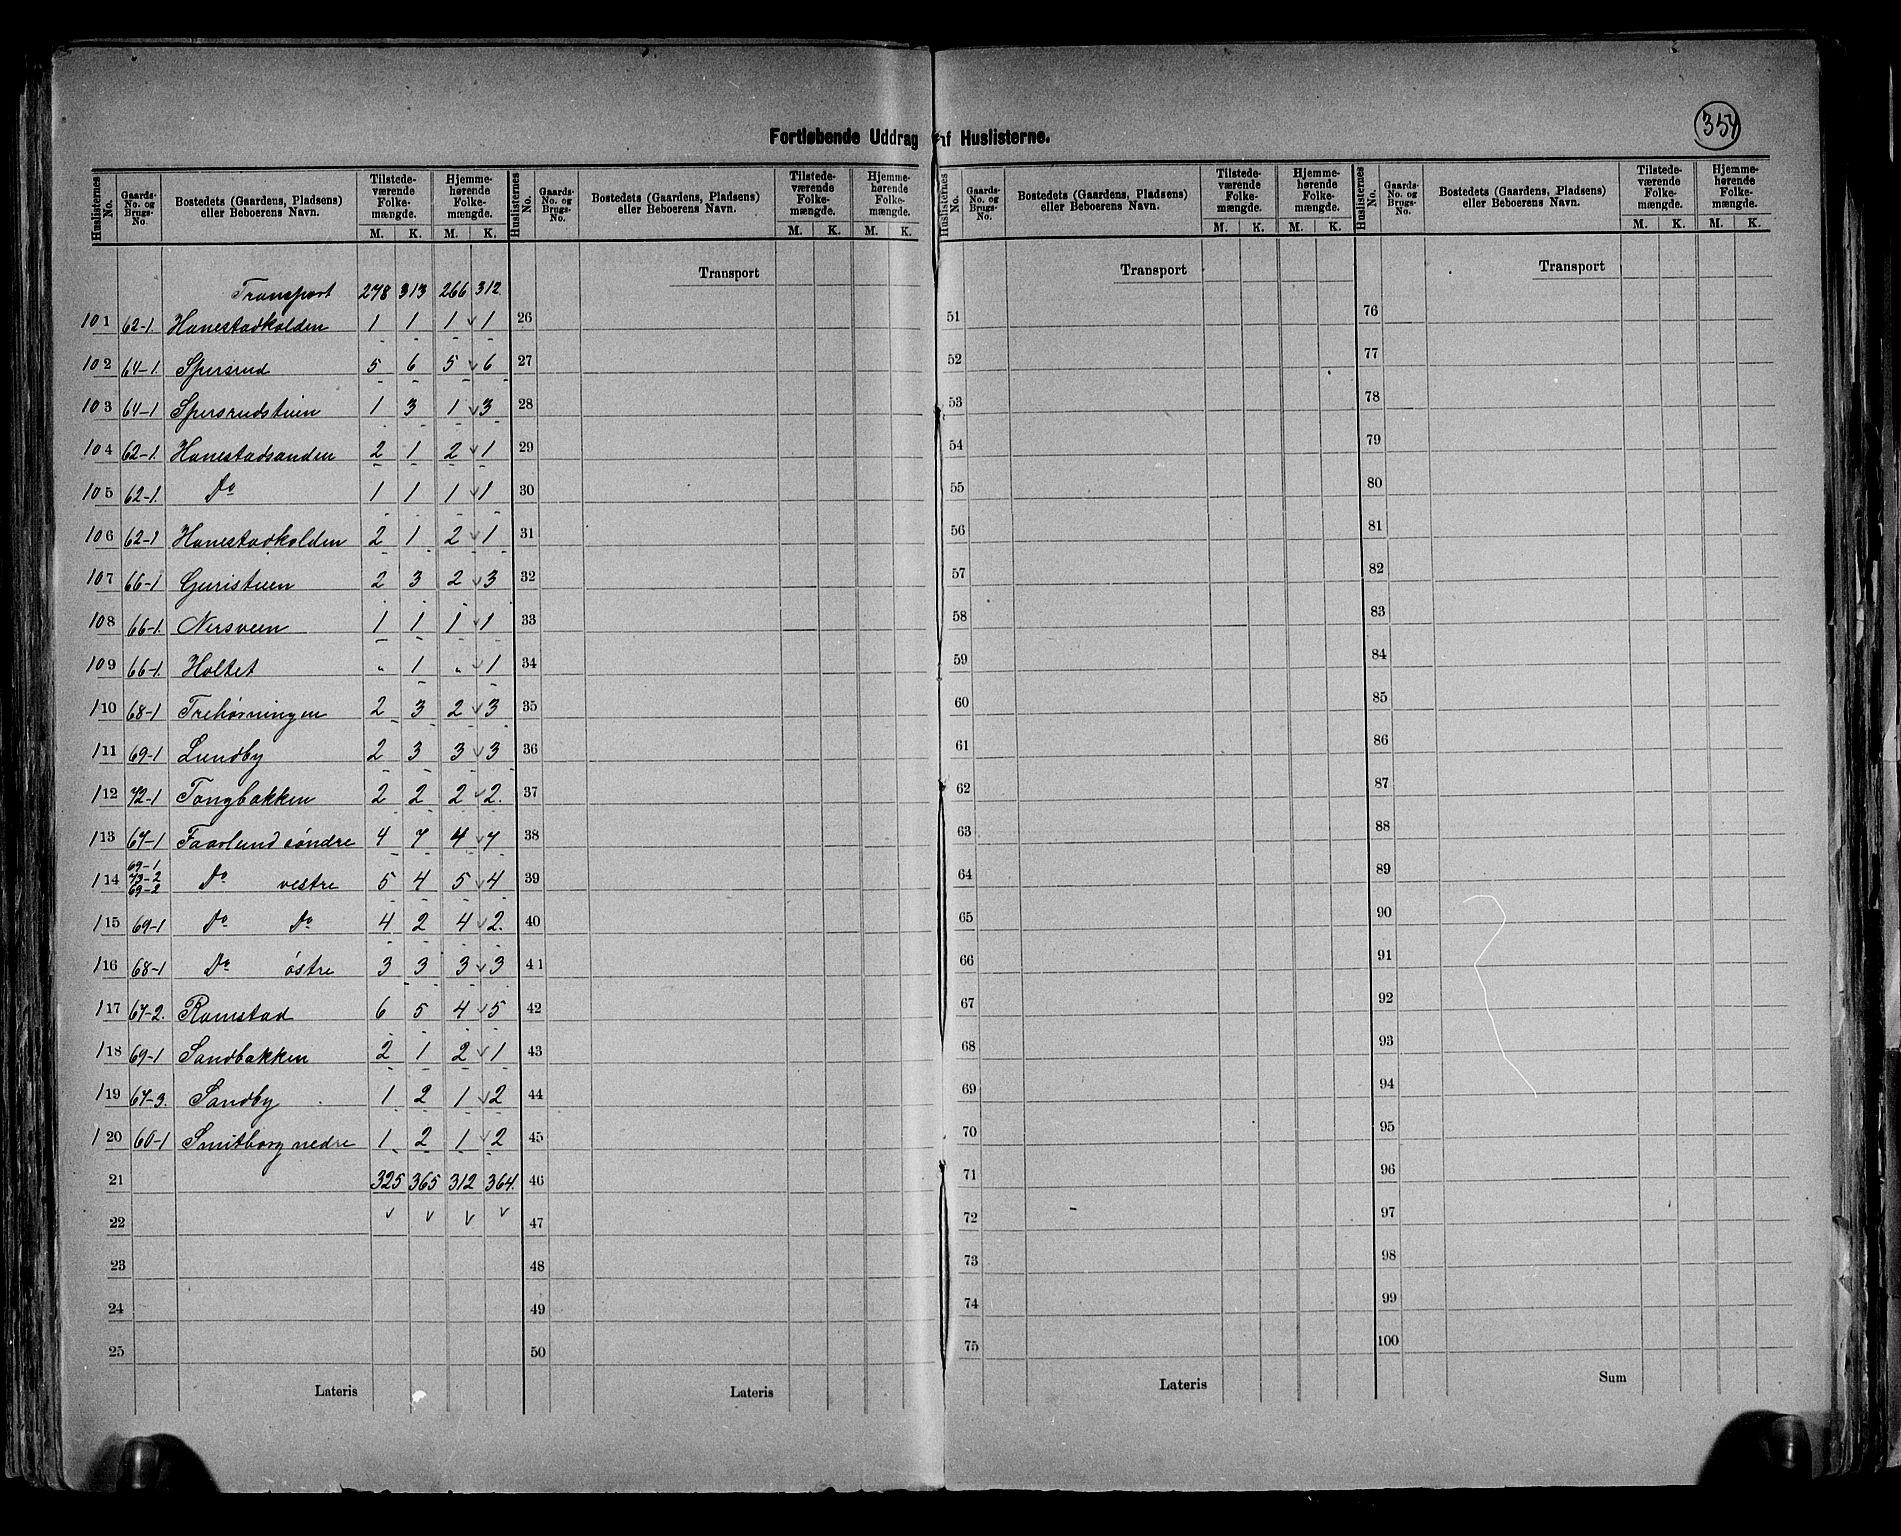 354
Fortløbende Uddrag af Huslisterne.
Huslisternes No. | Gaards-No. og Brugs-No. | Bostedets (Gaardens, Pladsens) eller Beboerens Navn. | Tilstedeværende Folkemængde. M. K. | Hjemmehørende Folkemængde. M. K.
Transport 278 313 266 312.
101 62-1. Hanestadkolden 1 1 1 1
102 64-1. Spersrud 5 6 5 6
103 64-1 Spersrudstuen 1 3 1 3
104 62-1. Hanestadsanden 2 1 2 1
105 62-1. Do 1 1 1 1
106 62-1 Hanestadkolden 2 1 2 1
107 66-1 Guristuen 2 3 2 3
108 66-1. Nersveen 1 1 1 1
109 66-1. Holtet " 1 " 1
110 68-1 Trehørningen 2 3 2 3
111 69-1 Lundby 2 3 3 3
112 72-1 Tangbakken 2 2 2 2.
113 67-1 Faarlund søndre 4 7 4 7
114 69-1 73-2 69-2 Do vestre 5 4 5 4
115 69-1 Do Do 4 2 4 2.
116 68-1 Do østre 3 3 3 3
117 67-2. Ramstad 6 5 4 5
118 69-1 Sandbakken 2 1 2 1
119 67-3. Sandby 1 2 1 2
120 60-1 Smitborg nedre 1 2 1 2
21 325 365 312 364.
22
23
24
25
Lateris
Huslisternes No. | Gaards-No. og Brugs-No. | Bostedets (Gaardens, Pladsens) eller Beboerens Navn. | Tilstedeværende Folkemængde. M. K. | Hjemmehørende Folkemængde. M. K.
Transport
26
27
28
29
30
31
32
33
34
35
36
37
38
39
40
41
42
43
44
45
46
47
48
49
50
Lateris
Huslisternes No. | Gaards-No. og Brugs-No. | Bostedets (Gaardens, Pladsens) eller Beboerens Navn. | Tilstedeværende Folkemængde. M. K. | Hjemmehørende Folkemængde. M. K.
Transport
51
52
53
54
55
56
57
58
59
60
61
62
63
64
65
66
67
68
69
70
71
72
73
74
75
Lateris
Huslisternes No. | Gaards-No. og Brugs-No. | Bostedets (Gaardens, Pladsens) eller Beboerens Navn. | Tilstedeværende Folkemængde. M. K. | Hjemmehørende Folkemængde. M. K.
Transport
76
77
78
79
80
81
82
83
84
85
86
87
88
89
90
91
92
93
94
95
96
97
98
99
100
Sum